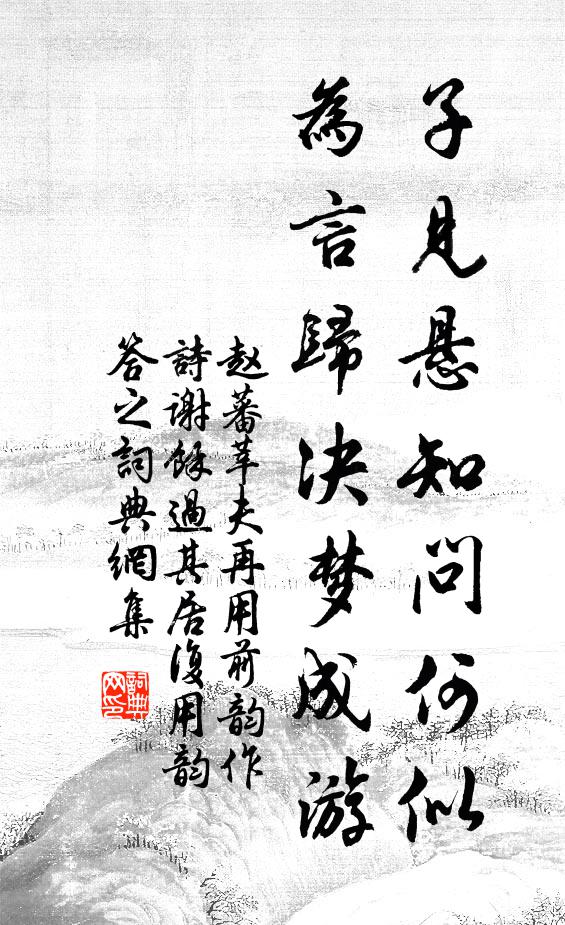 子見悬知問何似
為言歸决梦成游
赵蕃莘夫再用前韵作
詩谢馀過其居復用韵
答之詞典網集
詞典
网印